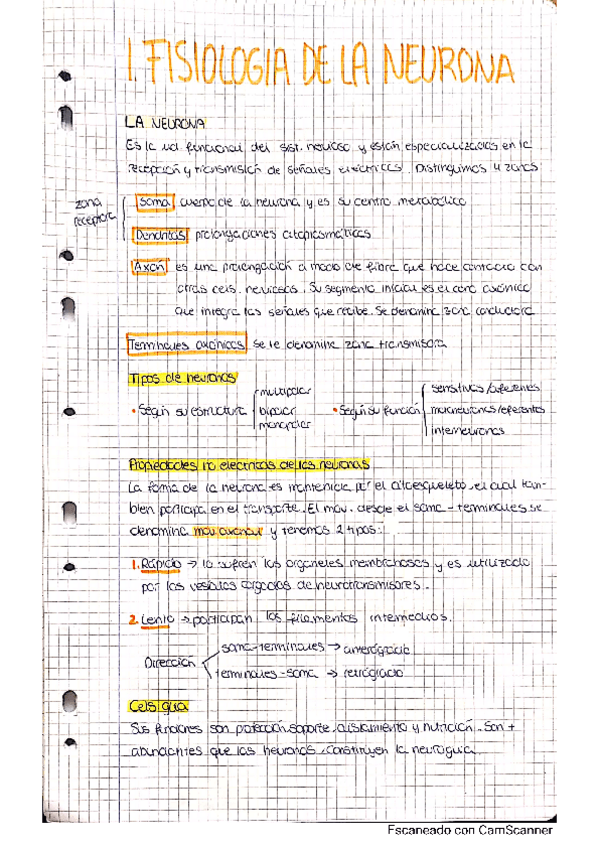 1. FISIOLOGIA DE LA NEURONA
LA NEURONA
Es la ud. funcional del sist. nervioso y están especializadas en la
recepción y transmisión de señales eléctricas. Distinguimos 4 zonas
zona
receptora
Soma cuerpo de la neurona y es su centro metabólico
Dendritas prolongaciones citoplasmáticas
Axón es una prolongación a modo de fibra que hace contacto con
otras cels. nerviosas. Su segmento inicial es el cono axónico
que integra las señales que recibe. Se denomina zona conductora
Terminales axónicos se le denomina zona transmisora
Tipos de neuronas
• Según su estructura
multipolar
bipolar
monopolar
• Según su función
sensitivas/aferentes
motoneuronas/eferentes
interneuronas
Propiedades no eléctricas de las neuronas
La forma de la neurona es mantenida por el citoesqueleto, el cual tam-
bién participa en el transporte. El mov. desde el soma - terminales se
denomina mov. axonal y tenemos 2 tipos:
1. Rápido → lo sufren los organeles membranosos y es utilizado
por las vesículas cargadas de neurotransmisores.
2. Lento → participan los filamentos intermedios.
Dirección
soma-terminales → anterógrado
terminales-soma → retrógrado
Cels glía
Sus funciones son protección, soporte, aislamiento y nutrición. Son +
abundantes que las neuronas, constituyen la neuroglia.
Escaneado con CamScanner